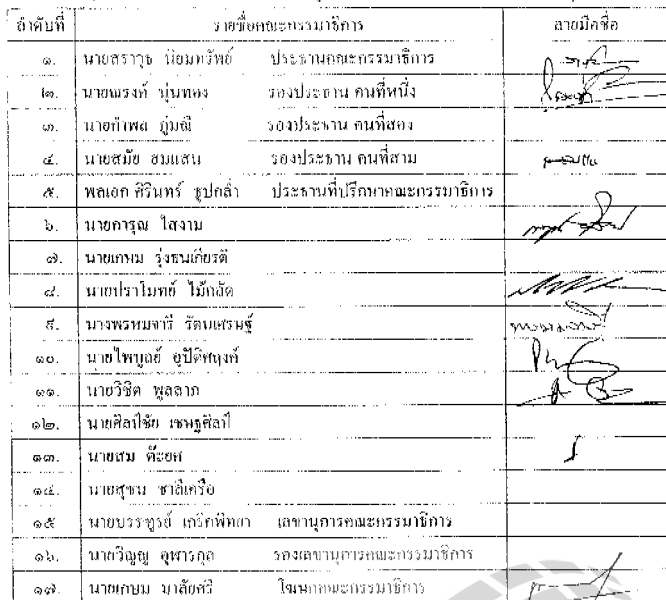 ลำดับที่ รายชื่อคณะกรรมาธิการ ลายมือชื่อ
๑. นายสราวุธ นิยมทรัพย์ ประธานคณะกรรมาธิการ
๒. นายณรงค์ นุ่นทอง รองประธาน คนที่หนึ่ง
๓. นายกำพล ภู่มณี รองประธาน คนที่สอง
๔. นายสมัย ฮมแสน รองประธาน คนที่สาม
๕. พลเอก ศิรินทร์ ธูปกล่ำ ประธานที่ปรึกษาคณะกรรมาธิการ
๖. นายการุณ ใสงาม
๗. นายเกษม รุ่งธนเกียรติ
๘. นายปราโมทย์ ไม้กลัด
๙. นางพรหมจารี รัตนเศรษฐ์
๑๐. นายไพบูลย์ อุปัติศฤงค์
๑๑. นายวิชิต พูลลาภ
๑๒. นายศิลป์ชัย เชษฐศิลป์
๑๓. นายสม ต๊ะยศ
๑๔. นายสุชน ชาลีเครือ
๑๕ นายบรรฑูรย์ เกริกพิทยา เลขานุการคณะกรรมาธิการ
๑๖. นายวิญญู อุฬารกุล รองเลขานุการคณะกรรมาธิการ
๑๗. นายเกษม มาลัยศรี โฆษกคณะกรรมาธิการ